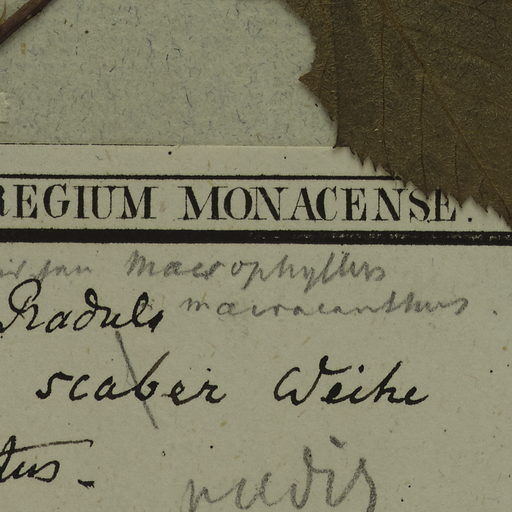 REGIUM MONACENSE.
macrophyllus
Radula macracanthus.
scaber Weihe
tus.
rudis